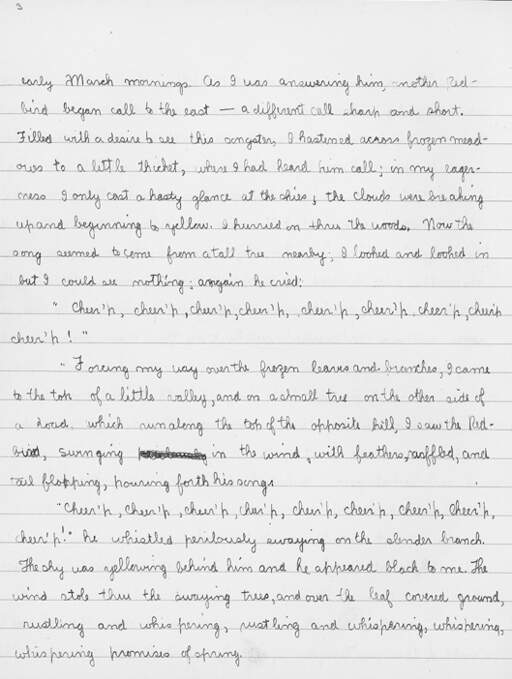 3
early March mornings. As I was answering him, another Red-
bird began call to the east — a different call sharp and short.
Filled with a desire to see this songster, I hastened across frozen mead-
ows to a little thicket, where I had heard him call; in my eager-
ness I only cast a hasty glance at the skies; the clouds were breaking
up and beginning to yellow. I hurried on thru the woods. Now the
song seemed to come from a tall tree nearby; I looked and looked in
but I could see nothing; again he cried:
" Cheer'p, cheer'p, cheer'p, cheer'p, cheer'p, cheer'p cheer'p, cheer'p
cheer'p ! "
" Forcing my way over the frozen leaves and branches, I came
to the top of a little valley, and on a small tree on the other side of
a road which run along the top of the opposite hill, I saw the Red-
bird, swinging in the wind, with feathers, ruffled, and
tail flopping, pouring forth his song.
"Cheer'p, Cheer'p, cheer'p, cheer'p, cheer'p, cheer'p, cheer'p, Cheer'p,
cheer'p!" he whistled perilously swaying on the slender branch.
The sky was yellowing behind him and he appeared black to me. The
wind stole thru the swaying trees, and over the leaf covered ground,
rustling and whispering, rustling and whispering, whispering,
whispering promises of spring.